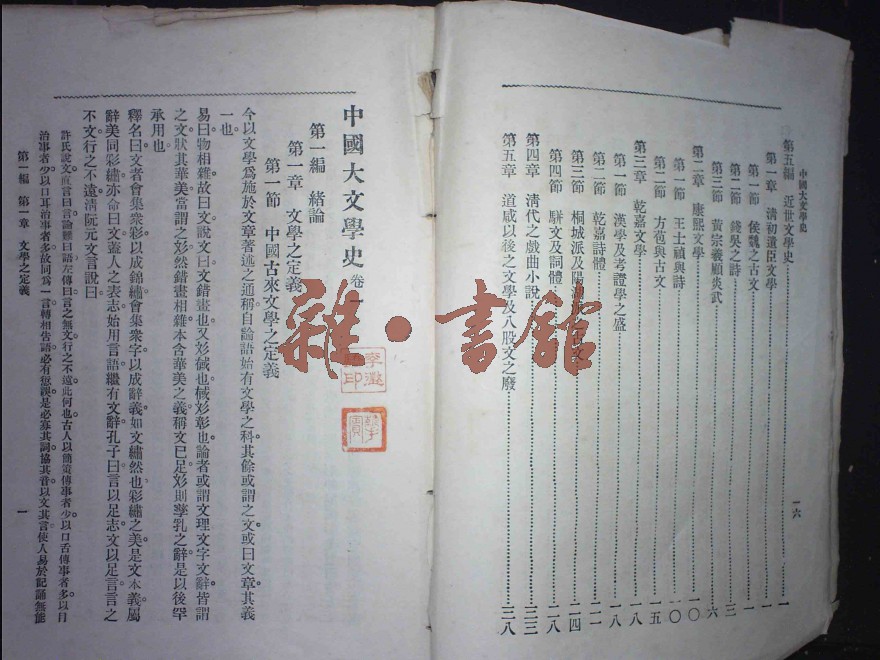 中國大文學史
第五編 近世文學史 一
第一章 淸初遺臣文學 一
第一節 侯魏之古文 一
第二節 錢吳之詩 三
第三節 黃宗羲顧炎武 六
第二章 康熙文學 一〇
第一節 王士禎與詩 一〇
第二節 方苞與古文 一五
第三章 乾嘉文學 一八
第一節 漢學及考證學之盛 一八
第二節 乾嘉詩體 二一
第三節 桐城派及陽 古文 二四
第四節 駢文及詞體 二八
第四章 淸代之戲曲小說 三三
第五章 道咸以後之文學及八股文之廢 三八
一六
中國大文學史 卷一
第一編 緒論
第一章 文學之定義
第一節 中國古來文學之定義
今以文學爲施於文章著述之通稱自論語始有文學之科其餘或謂之文或曰文章其義
一也。
易曰物相雜故曰文說文曰文錯畫也又彣㦽也㦽彣彰也論者或謂文理文字文辭皆謂
之文狀其華美當謂之彣然錯畫相雜本含華美之義稱文已足彣則孳乳之辭是以後罕
承用也。
釋名曰文者會集衆彩以成錦繡會集衆字以成辭義如文繡然也彩繡之美是文本義屬
辭美同彩繡亦命曰文蓋人之表志始用言語繼有文辭孔子曰言以足志文以足言言之
不文行之不遠淸阮元文言說曰
許氏說文直言曰言論難曰語左傳曰言之無文行之不遠此何也古人以簡策傳事者少以口舌傳事者多以目
治事者少以口耳治事者多故同爲一言轉相告語必有愆誤是必寡其詞協其音以文其言使人易於記誦無能
第一編 第一章 文學之定義
一
雜·書館